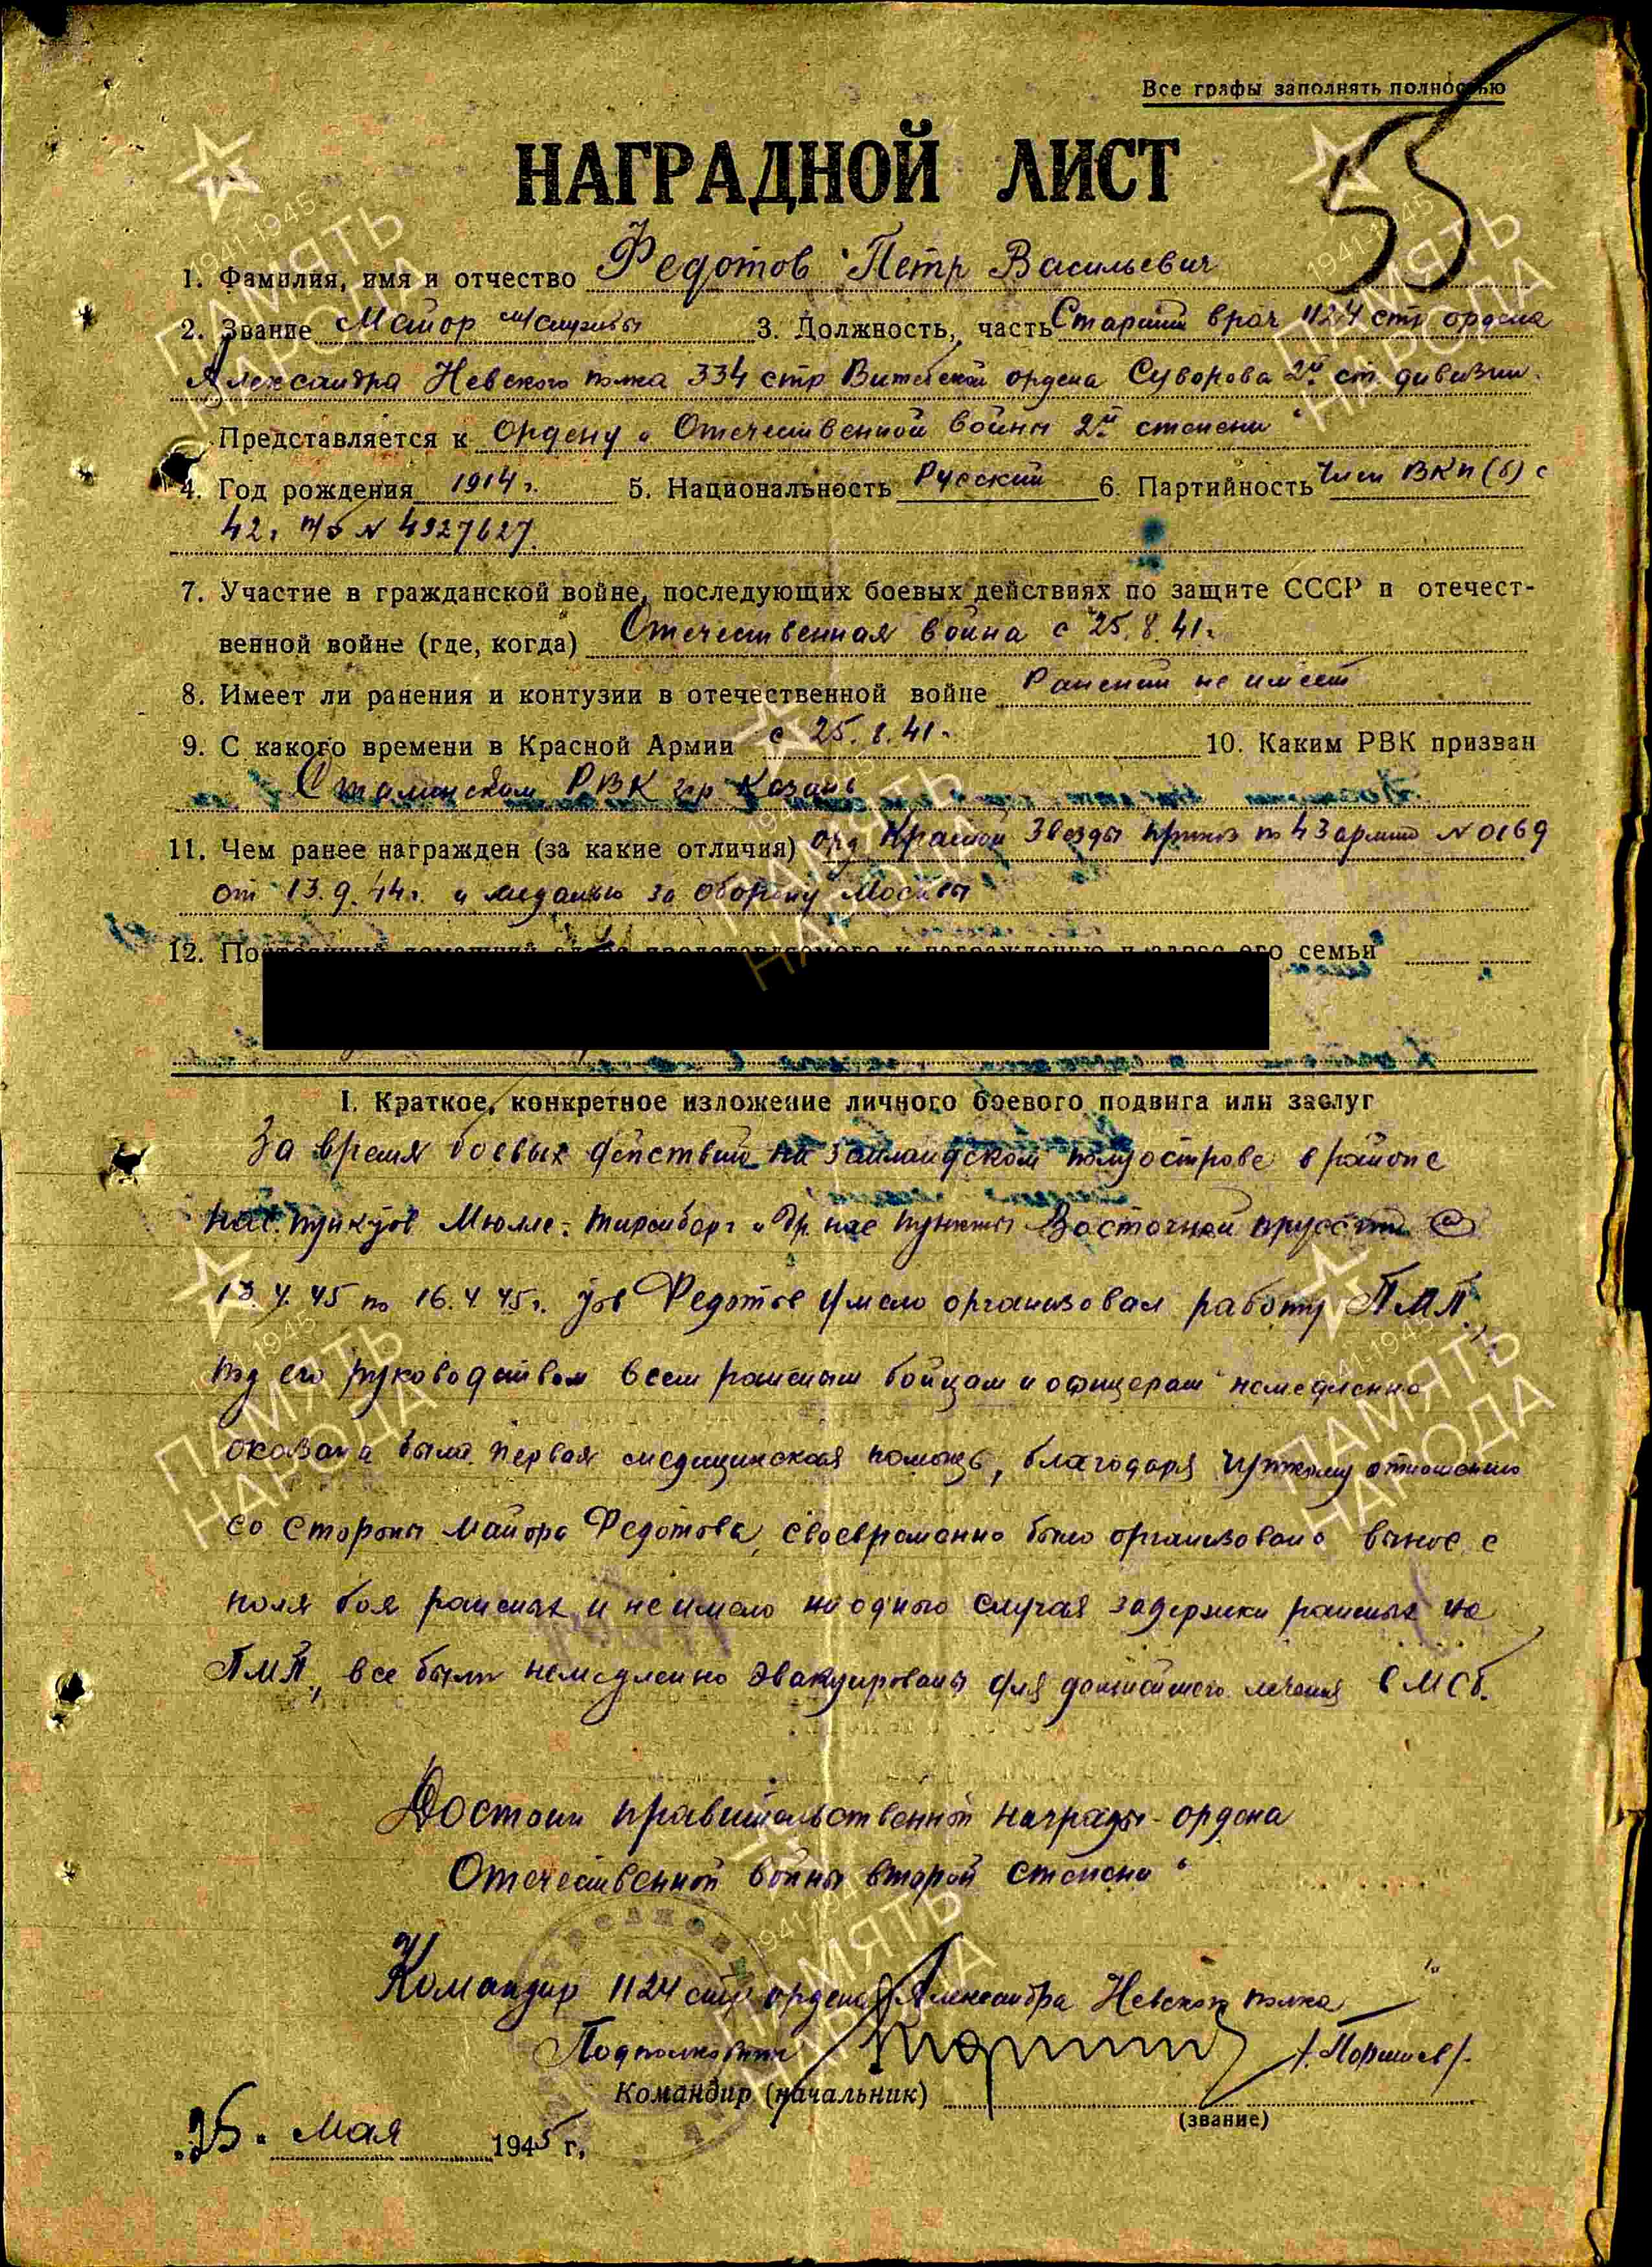 Все графы заполнять полностью
55
НАГРАДНОЙ ЛИСТ
1. Фамилия, имя и отчество Федотов Петр Васильевич
2. Звание Майор м/службы 3. Должность, часть Старший врач 1124 стр ордена
Александра Невского полка 334 стр Витебской ордена Суворова 2й ст. дивизии.
Представляется к Ордену "Отечественной войны 2й степени"
4. Год рождения 1914 г. 5. Национальность Русский 6. Партийность Член ВКП(б) с
42г п/б N 4927627.
7. Участие в гражданской войне, последующих боевых действиях по защите СССР и отечест-
венной войне (где, когда) Отечественная война с 25.8.41г.
8. Имеет ли ранения и контузии в отечественной войне Ранений не имеет
9. С какого времени в Красной Армии с 25.8.41г. 10. Каким РВК призван
Сталинским РВК гор Казань
11. Чем ранее награжден (за какие отличия) орд Красной Звезды приказ по 43 армии N 0169
от 13.9.44г. и медалью за оборону Москвы
12. По о семьи
I. Краткое, конкретное изложение личного боевого подвига или заслуг
За время боевых действий на Замландском полуострове в районе
нас. пунктов Мюлле-Тиренберг и др. нас пункты Восточной пруссии с
13.4.45 по 16.4.45г. тов Федотов умело организовал работу ПМП,
под его руководством всем раненым бойцам и офицерам немедленно
оказана была первая медицинская помощь, благодаря чуткому отношению
со стороны майора Федотова, своевременно было организовано вынос с
поля боя раненых, и не имело ни одного случая задержки раненых на
ПМП, все были немедленно эвакуированы для дальнейшего лечения в МСБ.
Достоин правительственной награды - ордена
Отечественной войны второй степени"
Командир 1124 стр ордена Александра Невского полка
Подполковник /Поршнев/.
Командир (начальник)
(звание)
"25" мая 1945 г.
1941-1945
ПАМЯТЬ
НАРОДА
1941-1945
ПАМЯТЬ
НАРОДА
1941-1945
ПАМЯТЬ
НАРОДА
1941-1945
ПАМЯТЬ
НАРОДА
1941-1945
ПАМЯТЬ
НАРОДА
1941-1945
ПАМЯТЬ
НАРОДА